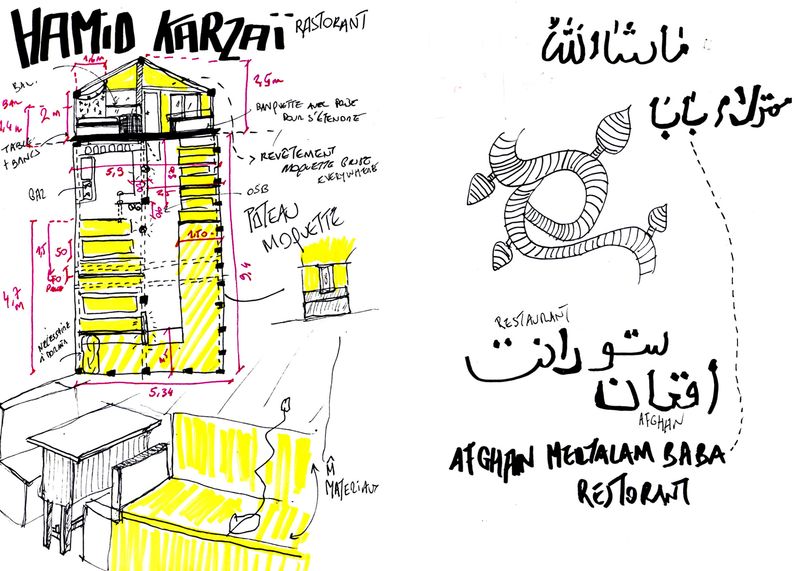 HAMID KARZAÏ RASTORANT
1,6m
BAR
2m
2,5m
BANQUETTE AVEC POUF
POUR S'ÉTENDRE
TABLE
+ BANCS
REVÊTEMENT
MOQUETTE GRISE
EVERYWHERE
5,9
GAZ
OSB
POTEAU
MOQUETTE
1,50
50
9,4
4,7
M
5,34
M̂
MATERIAUX
ماشاءالله
مترلام بابا
RESTAURANT
ستورانت
افغان
AFGHAN
AFGHAN MERTALAM BABA
RESTORANT